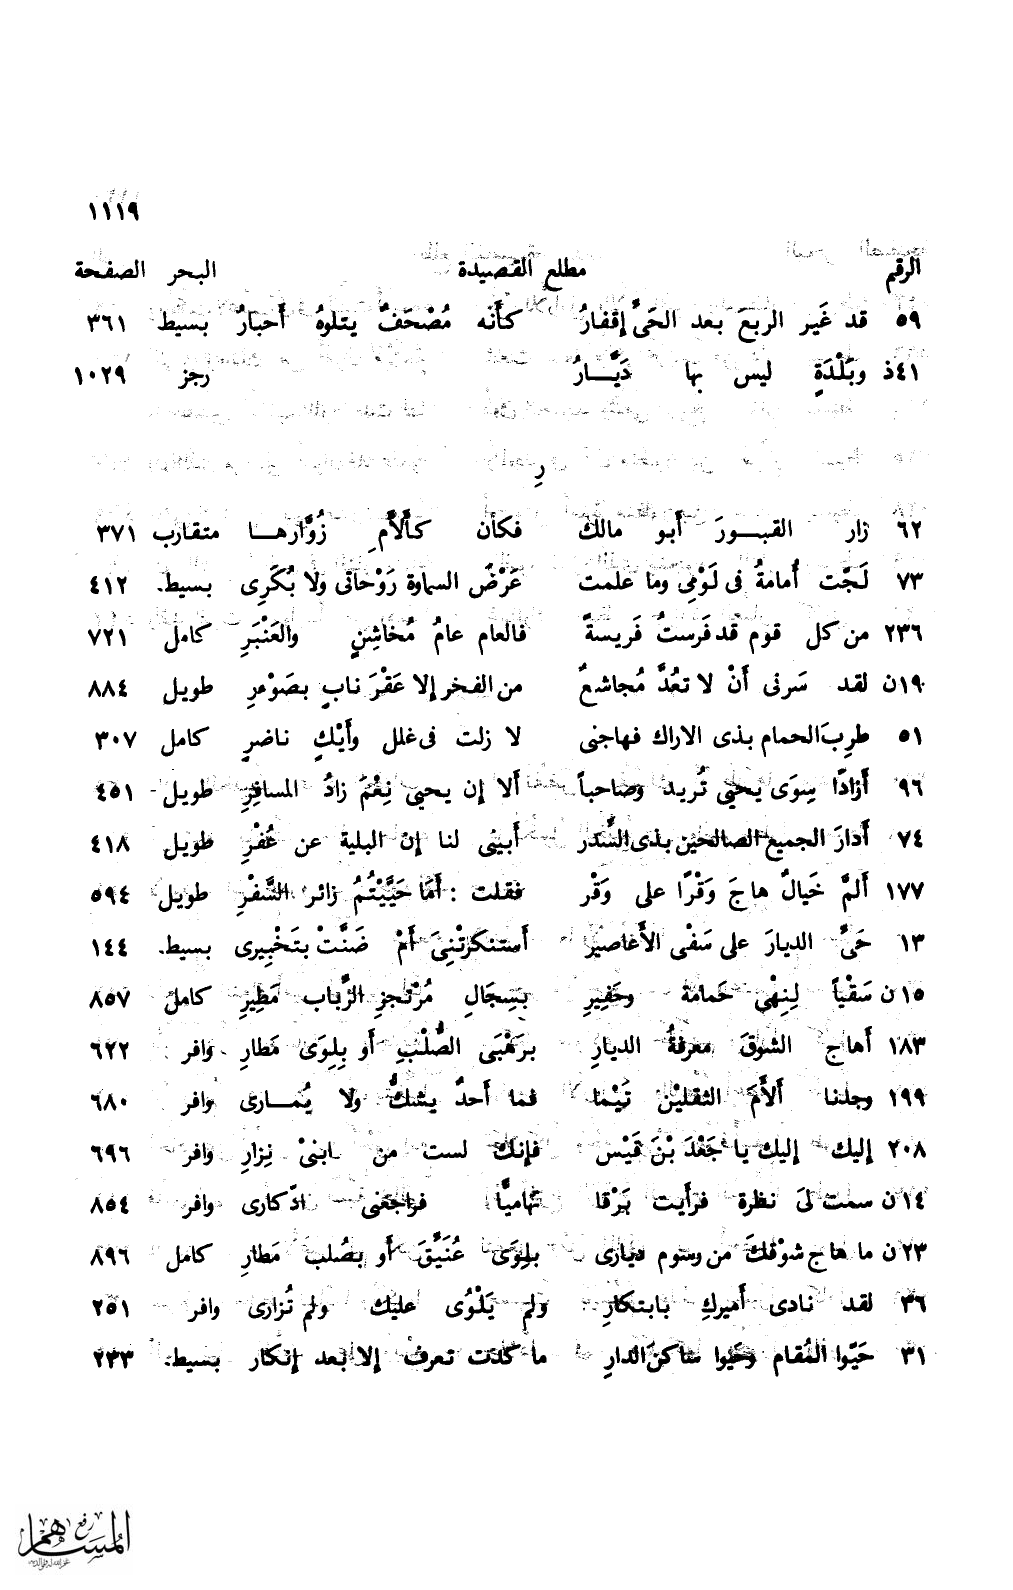 ١١١٩
الرقم مطلع القصيدة البحر الصفحة
٥٩ قد غَير الربعَ بعد الحَىِّ إقفارُ كأَنه مُصْحَفٌ يتلوهُ أَحبارُ بسيط ٣٦١
٤١ذ وبَلْدَةٍ ليس بها دَيَّــارُ رجز ١٠٢٩
رِ
٦٢ زار القبــورَ أَبو مالك فكأن كأَلأَمِ زُوَّارهــا متقارب ٣٧١
٧٣ لَجَّت أُمامةُ فى لَوْمِى وما علمت عَرْضُ السماوة رَوْحاتى ولا بُكَرِى بسيط ٤١٢
٢٣٦ من كل قوم قد فَرستُ فَريسةً فالعام عامُ مُخاشِنٍ والعَنْبَرِ كامل ٧٢١
١٩ن لقد سَرنى أَنْ لا تعُدَّ مُجاشعٌ من الفخر إلا عَقْرَ نابٍ بصَوْءرِ طويل ٨٨٤
٥١ طرِبَ الحمام بذى الاراك فهاجنى لا زلت فى غلل وأَيْكٍ ناضرٍ كامل ٣٠٧
٩٦ أَزادًا سِوَى يحيى تُريد وصاحباً أَلا إن يحيى نِعْمَ زادُ المسافِرِ طويل ٤٥١
٧٤ أَدارَ الجميع الصالحين بذى السِّدر أَبينى لنا إن البلية عن عُفْرِ طويل ٤١٨
١٧٧ أَلمَّ خَيالٌ هاجَ وَقْرًا على وَقْر فقلت : أَمَا حَيَّيْتُمُ زائر السَّفْرِ طويل ٥٩٤
١٣ حَىِّ الديارَ على سَفْى الأَعاصير أَستنكرَتْنِىَ أَمْ ضَنَّتْ بتَخْبِيرى بسيط ١٤٤
١٥ن سَقْياً لِنِهْىِ حَمامة وحَفِيرِ بسِجَالِ مُرْتجزِ الرَّباب مَطِيرِ كامل ٨٥٧
١٨٣ أَهاج الشوقَ معرفةُ الديارِ برَهْبَى الصُّلْبِ أَو بِلِوَى مَطارِ وافر ٦٢٢
١٩٩ وجلنا أَلأَمَ الثقليْن تَيْما فما أَحدٌ يشكُّ ولا يُمــارى وافر ٦٨٠
٢٠٨ إليك إليك يا جَعْدَ بْنَ قَيْس فإنك لست من ابنىْ نِزارِ وافر ٦٩٦
١٤ن سمت لىَ نظرة فرأَيت بَرْقا تهاميًّا فراجعنى ادّكارى وافر ٨٥٤
٢٣ن ما هاج شوْقكَ من رسوم ديارى بلِوَى عُنَيِّقَ أَو بصُلب مَطارِ كامل ٨٩٦
٣٦ لقد نادى أَميركِ بابتكارِ ولم يَلْوُى عليك ولم تُزارى وافر ٢٥١
٣١ حَيّوا المُقام وحَيوا ساكن الدارِ ما كدت تعرف إلا بعد إنكار بسيط ٢٣٣